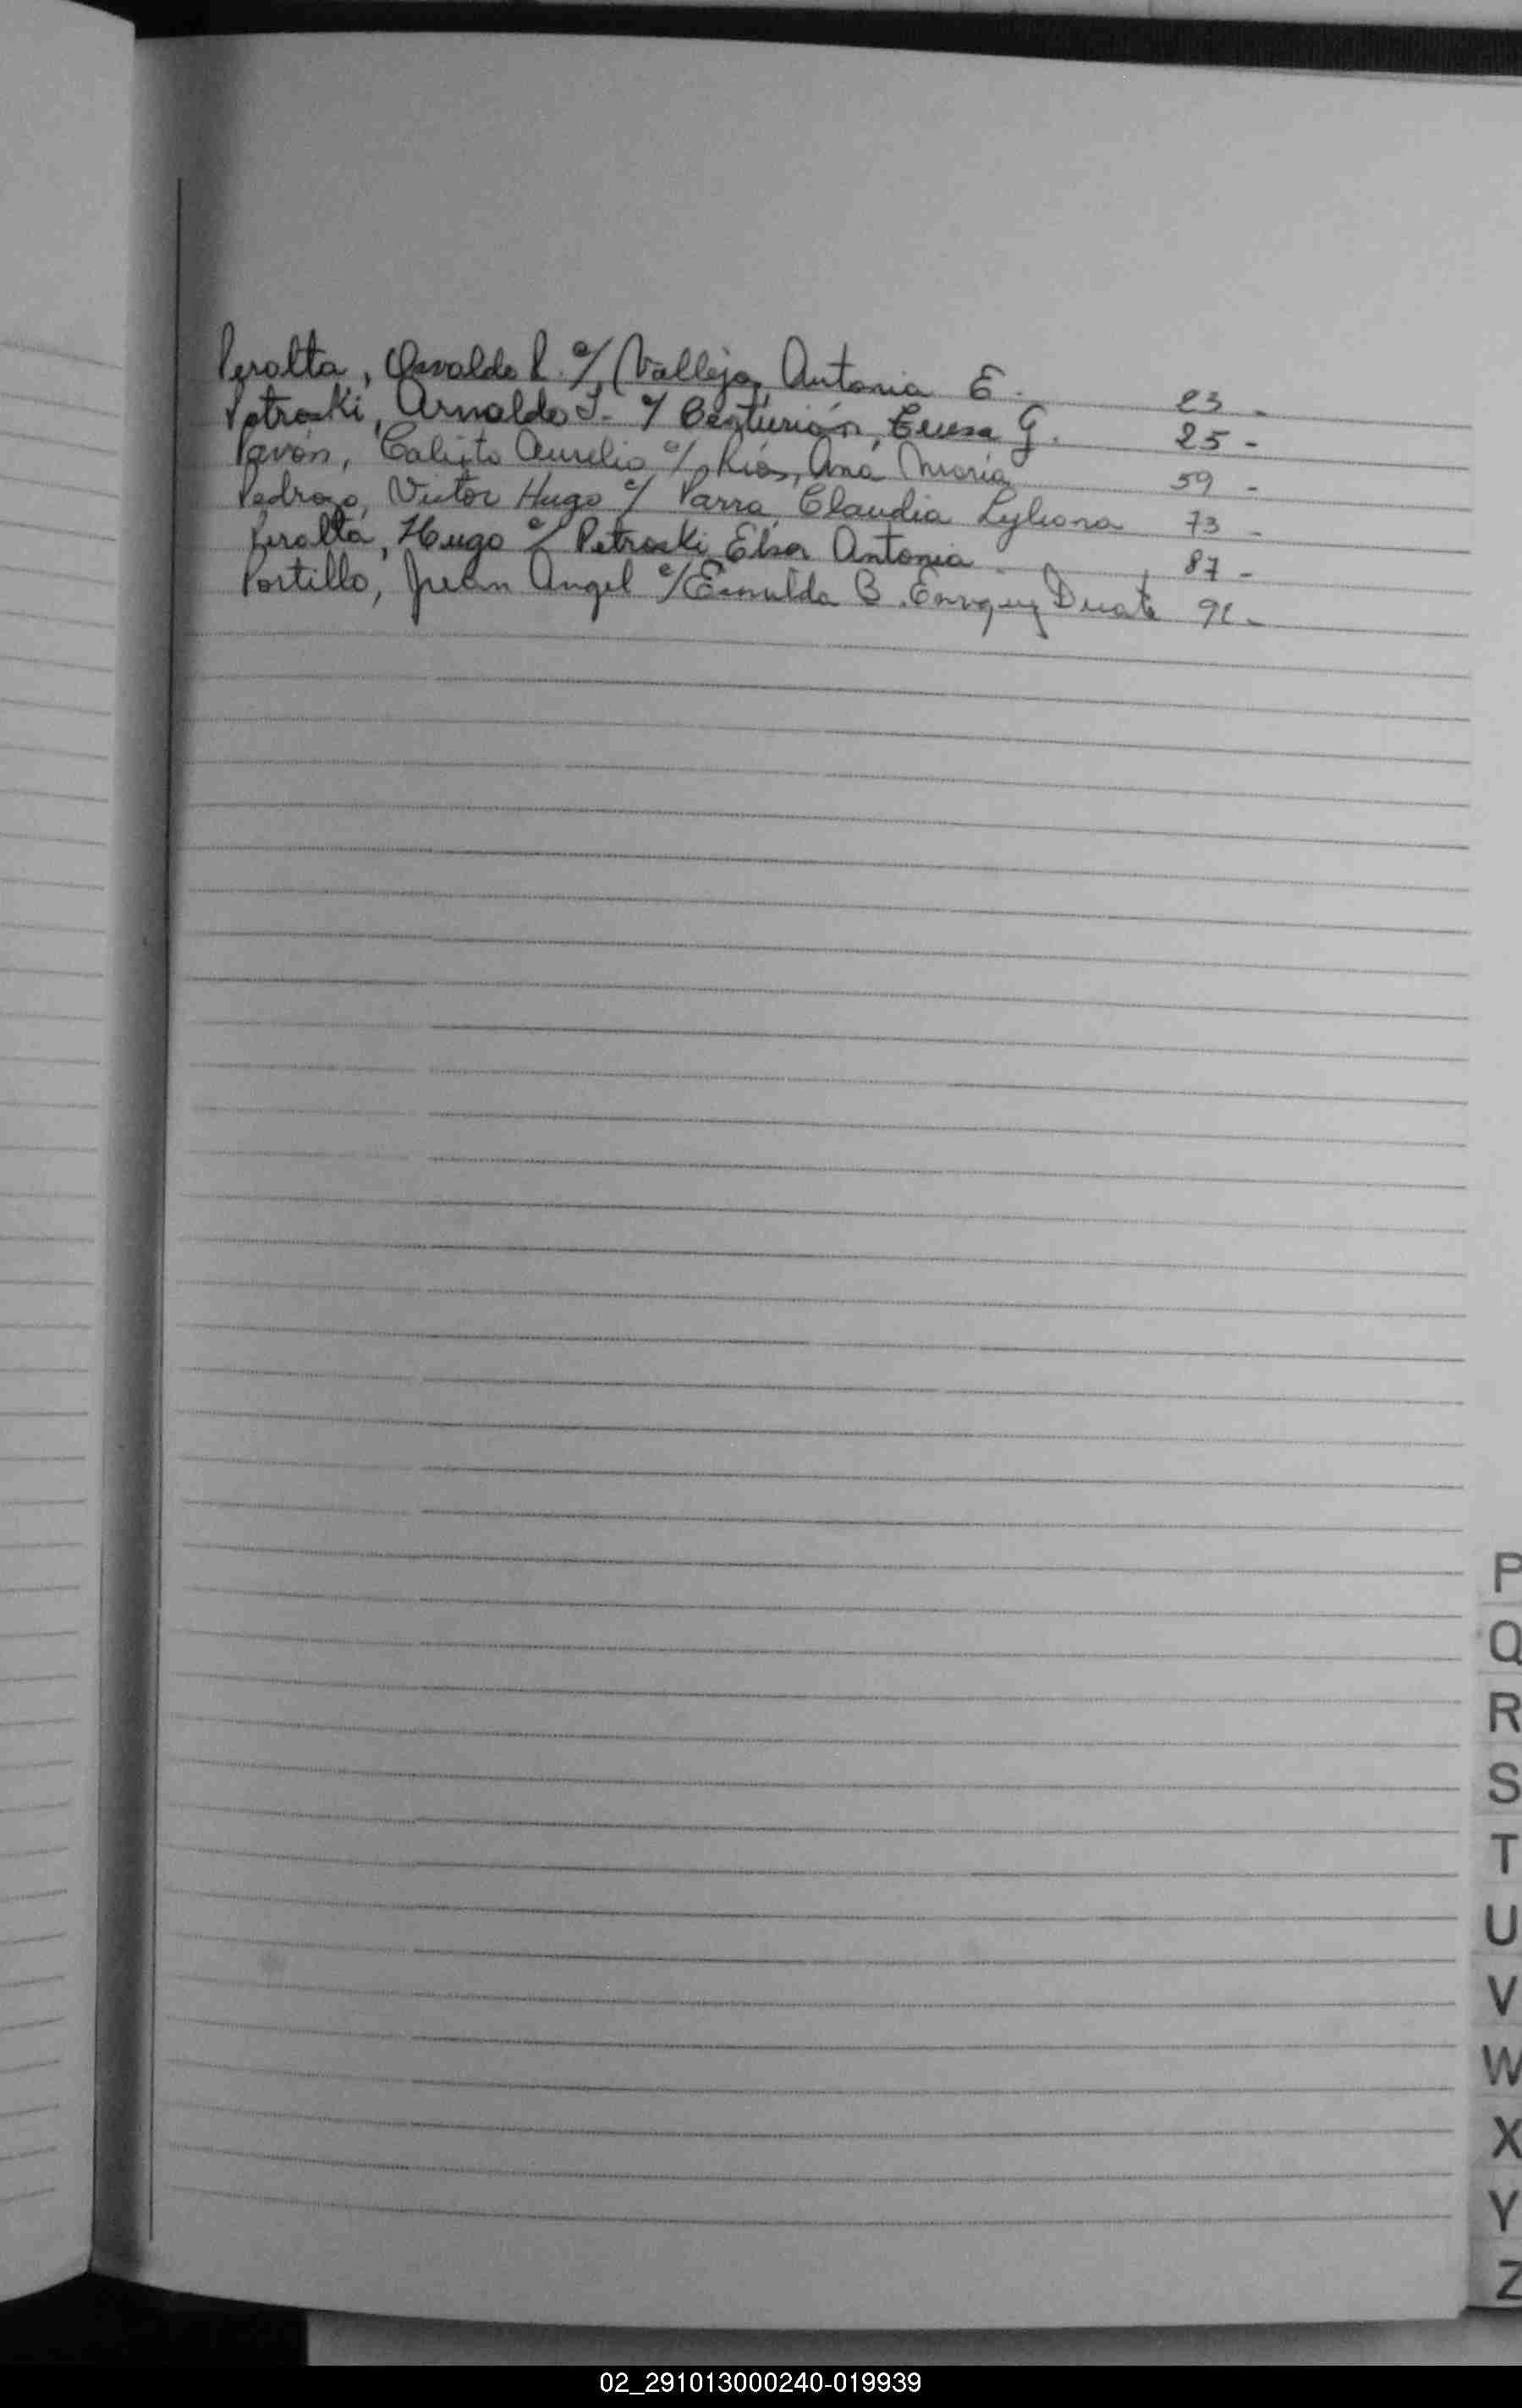 Peralta, Osvaldo R. c/ Vallejo, Antonia E. 23 -
Petroski, Arnaldo J. c/ Centurión, Teresa G. 25 -
Pavón, Calixto Aurelio c/ Ríos, Ana María 59 -
Pedrozo, Victor Hugo c/ Parra, Claudia Lyliana 73 -
Peralta, Hugo c/ Petroski, Elsa Antonia 87 -
Portillo, Juan Angel c/ B. Duarte 91 -
P
Q
R
S
T
U
V
W
X
Y
Z
02_291013000240-019939